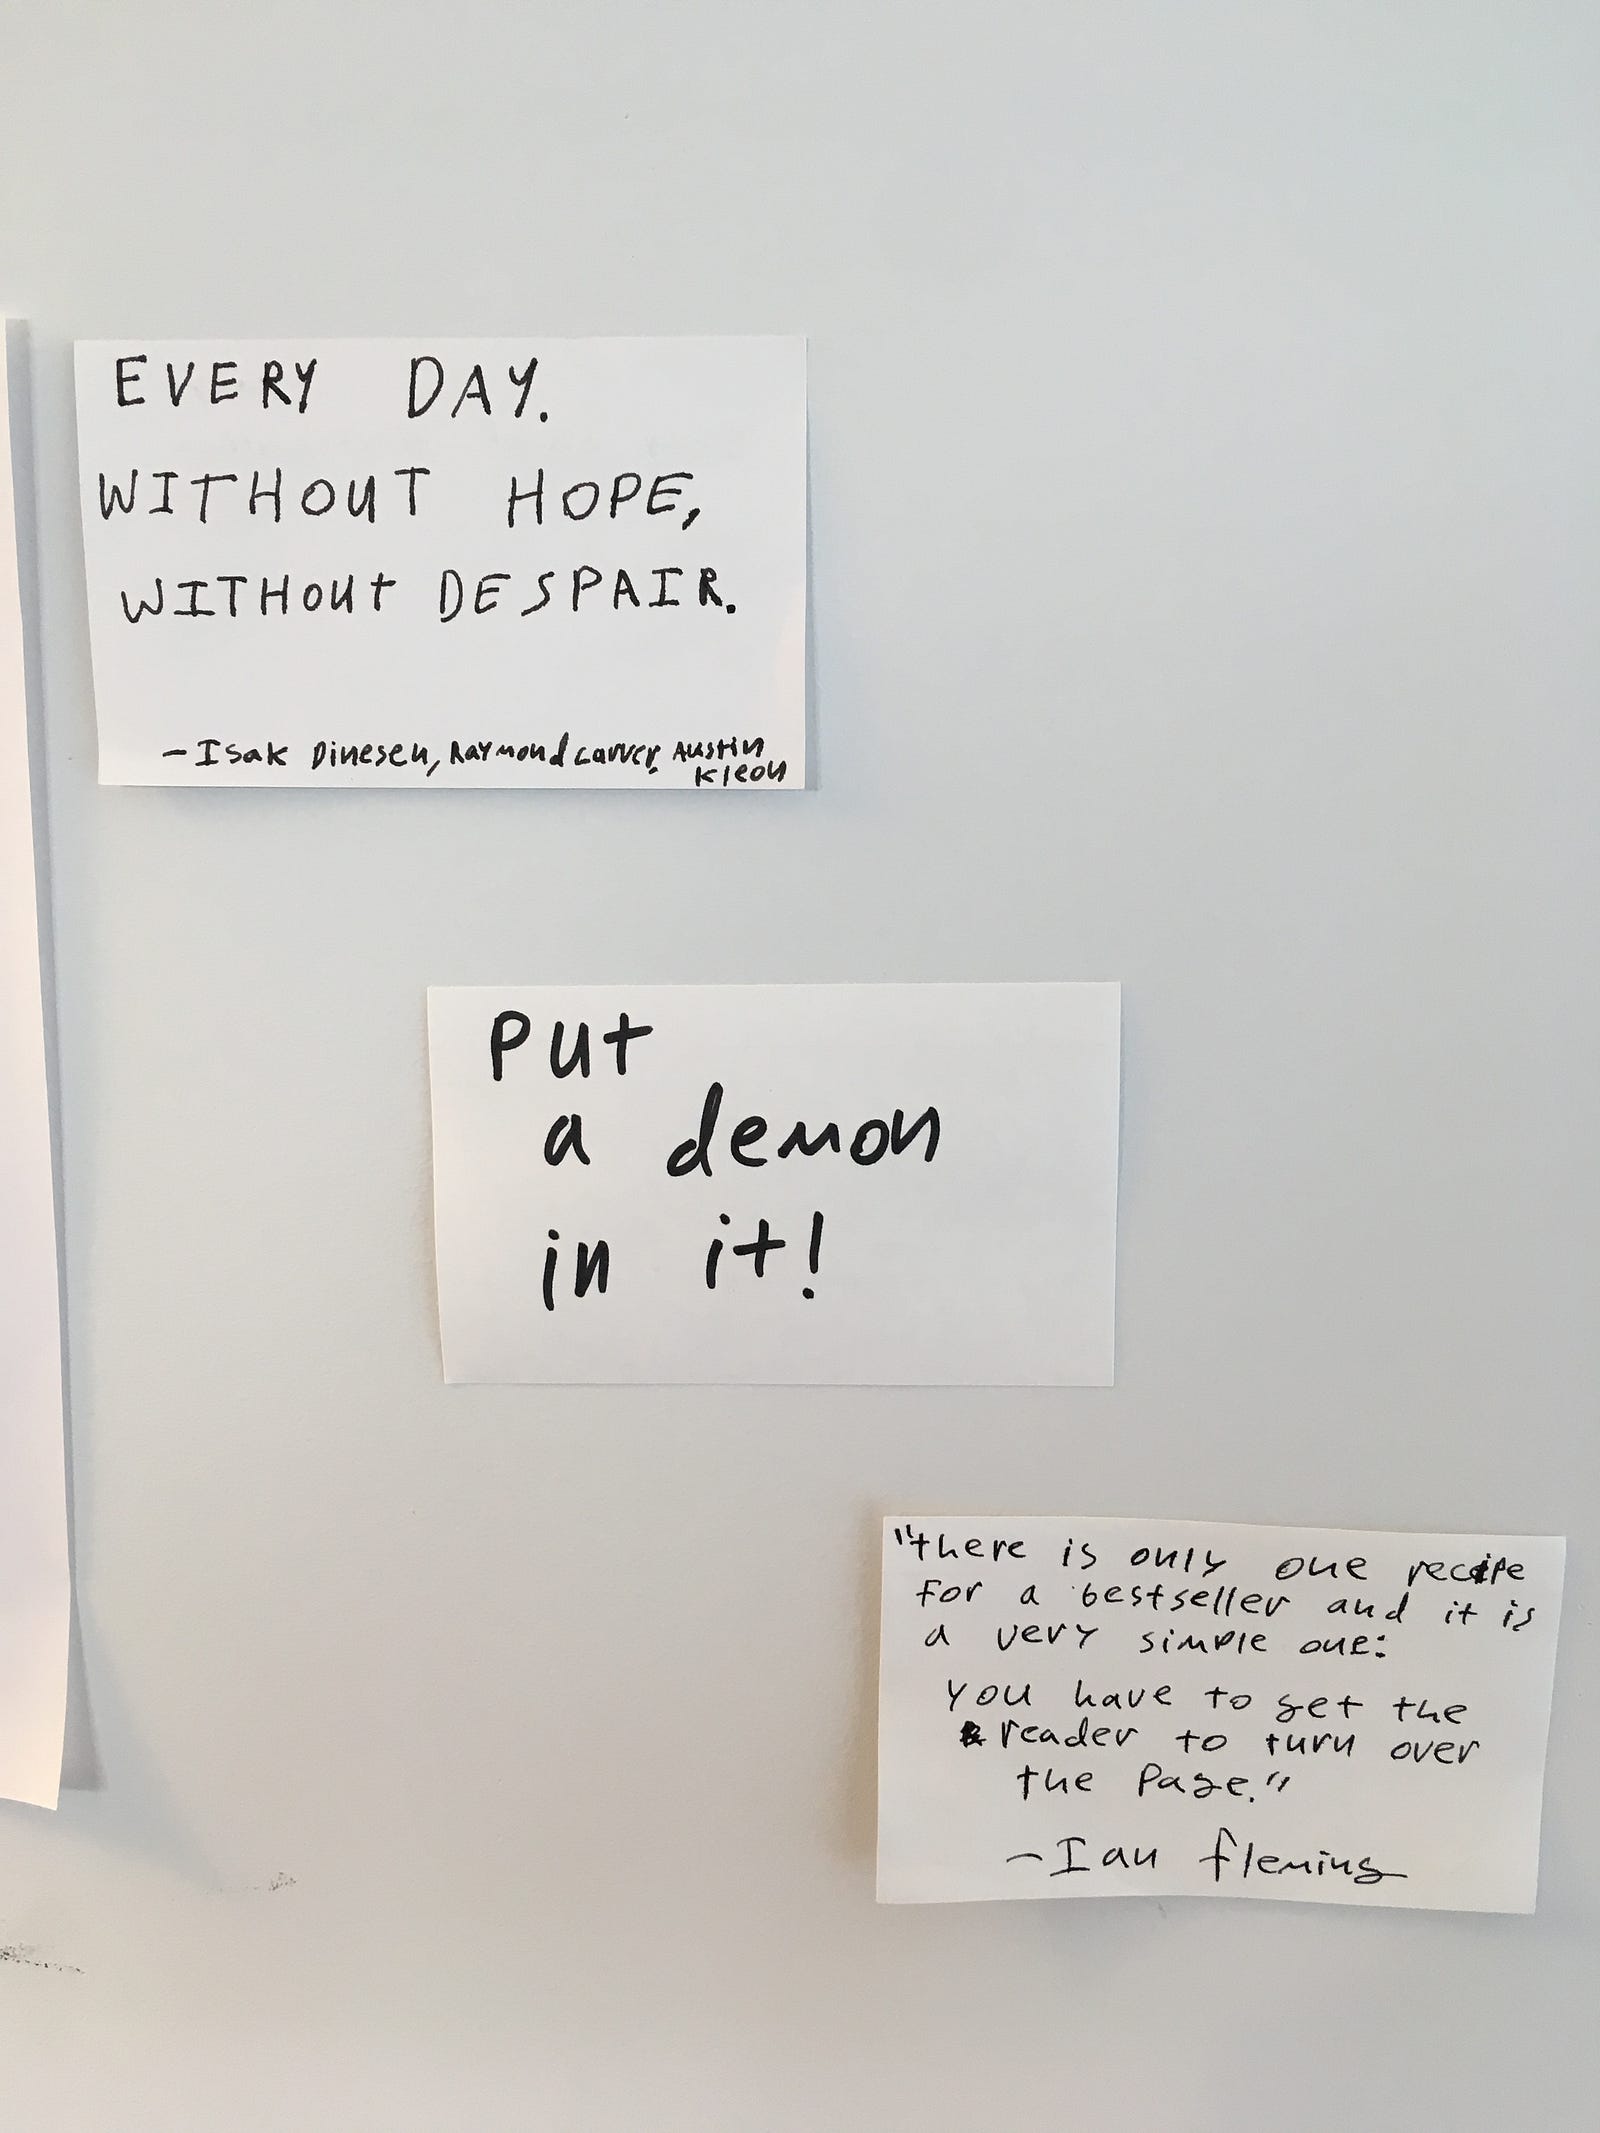 EVERY DAY.
WITHOUT HOPE,
WITHOUT DESPAIR.
- Isak Dinesen, Raymond Carver, Austin
Kleon
Put
a demon
in it!
"there is only one recipe
for a bestseller and it is
a very simple one:
you have to get the
reader to turn over
the page."
- Ian Fleming